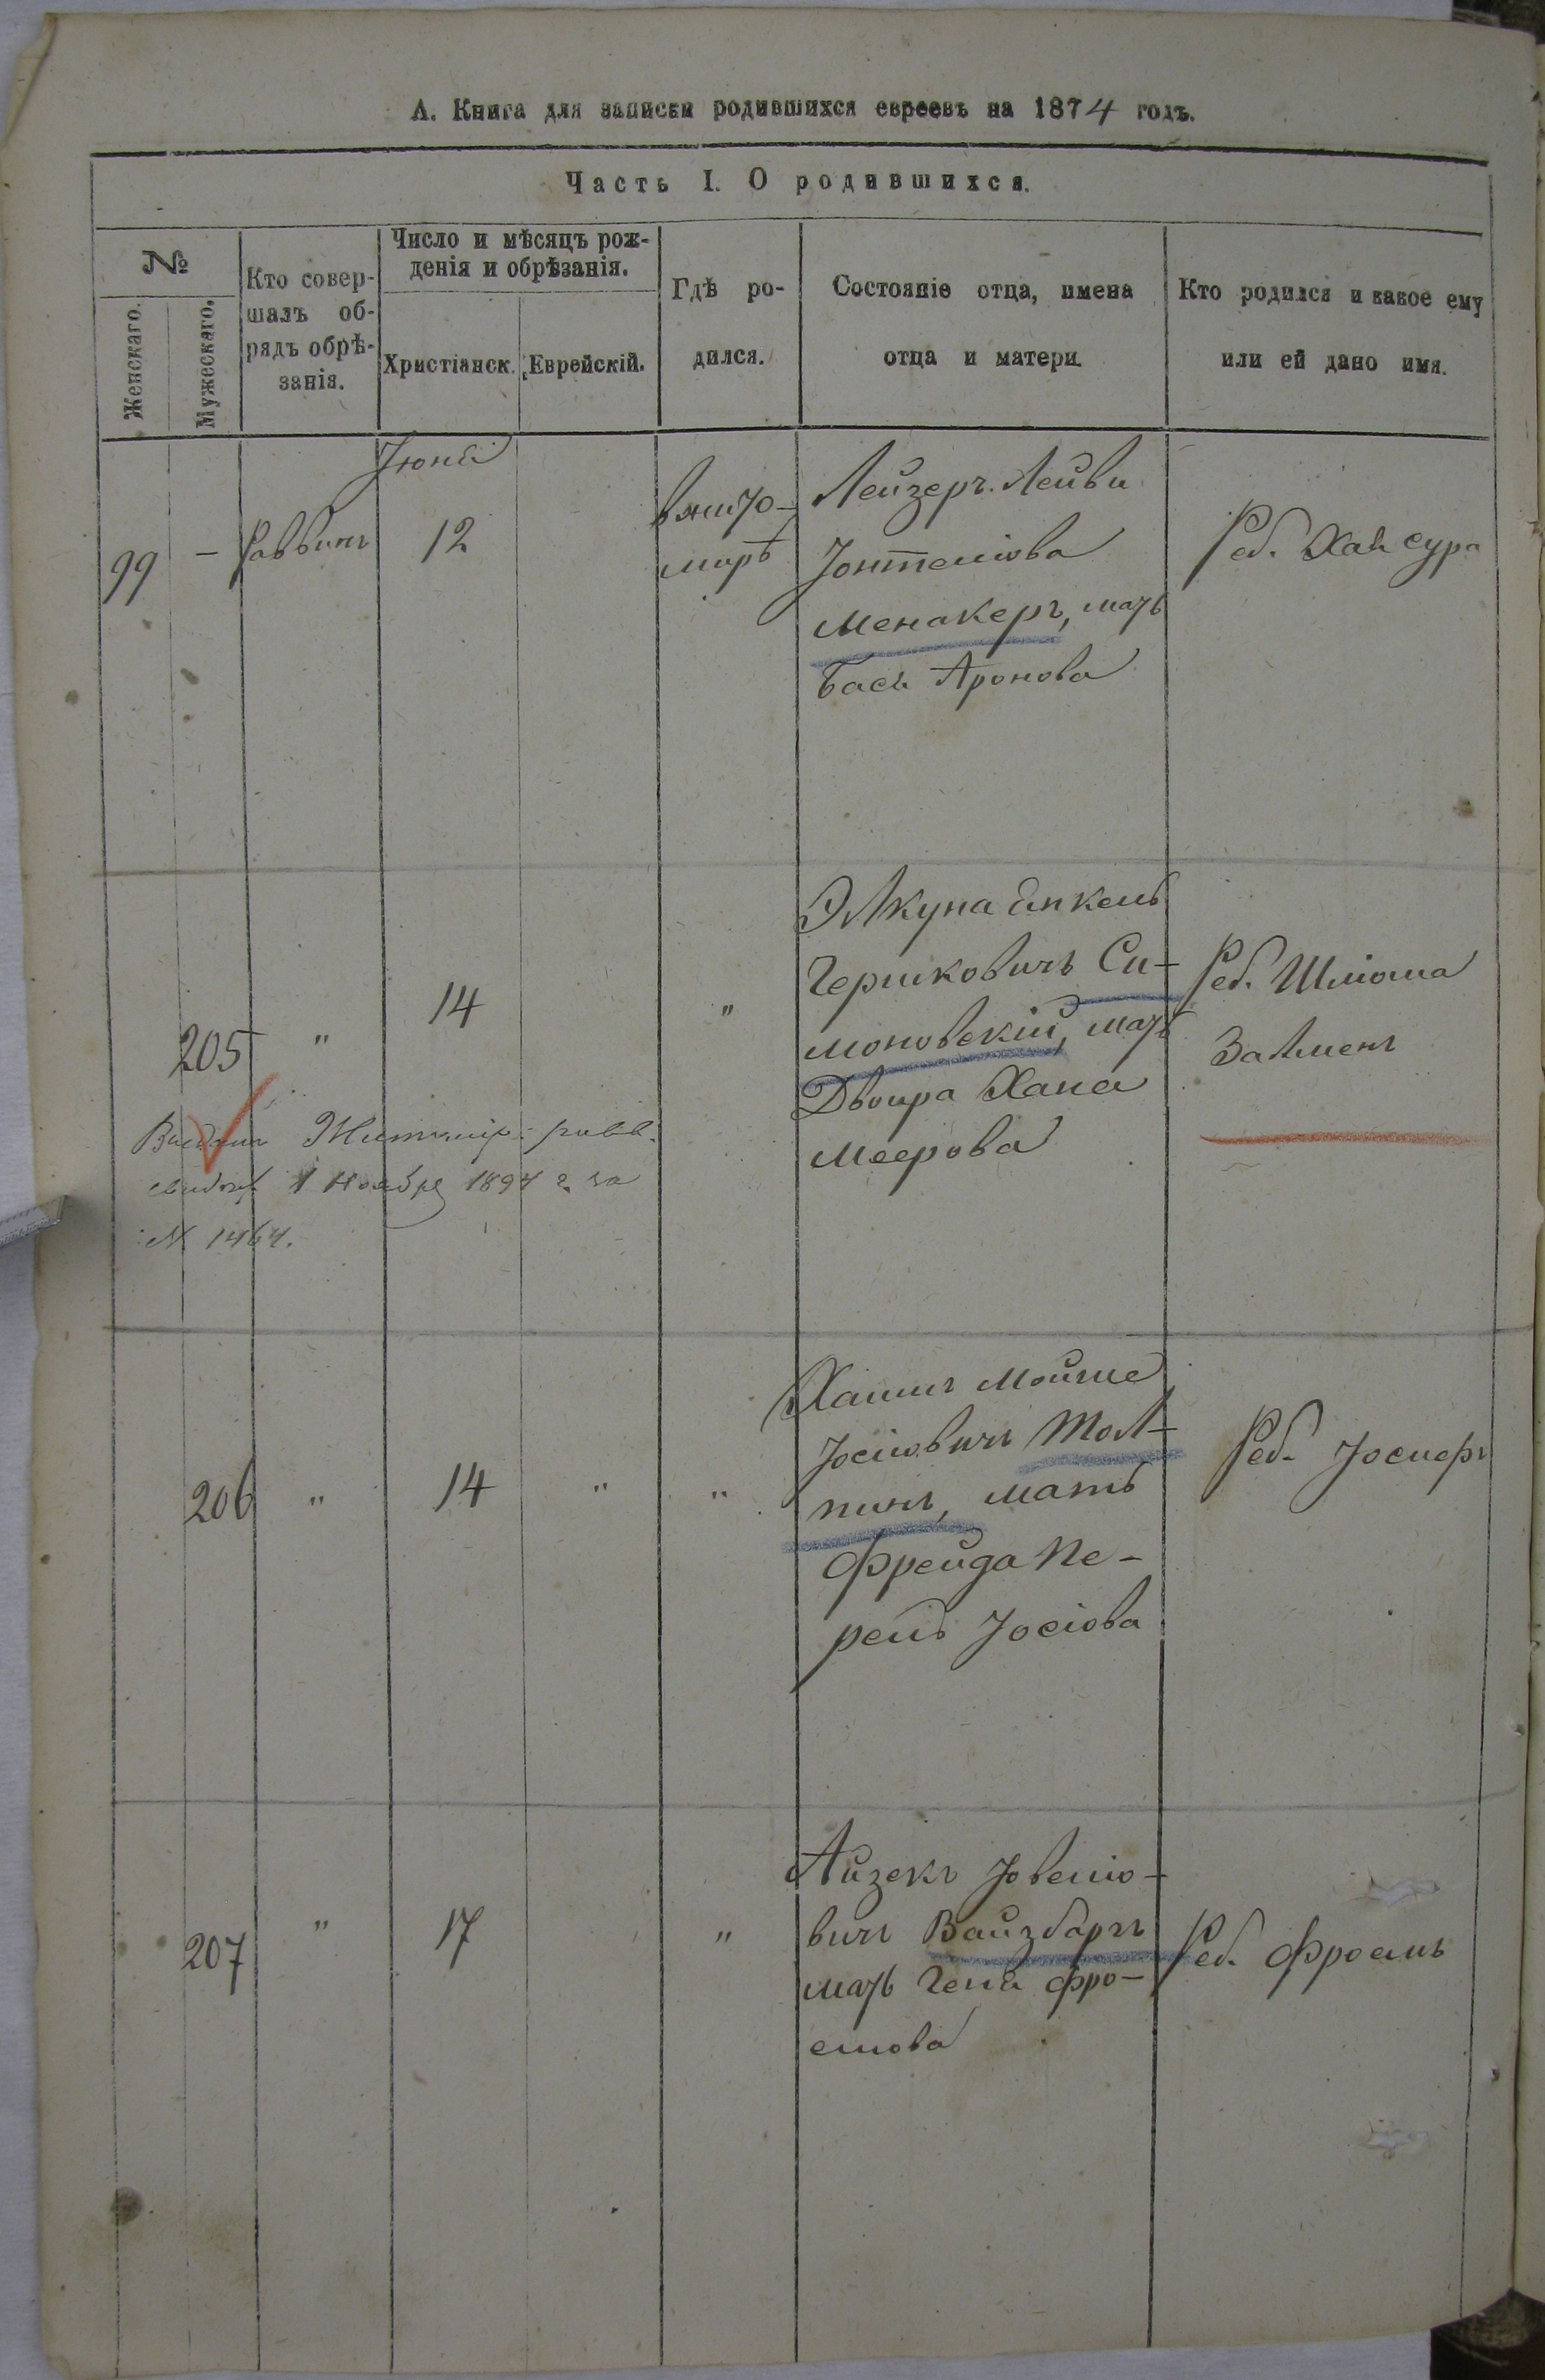 А. Книга для записки родившихся евреевъ на 1874 годъ.
Часть I. О родившихся.
№
Женскаго.
Мужескаго.
Кто совер-
шалъ об-
рядъ обрѣ-
занія.
Число и мѣсяцъ рож-
денія и обрѣзанія.
Христіанск.
Еврейскій.
Гдѣ ро-
дился.
Состояніе отца, имена
отца и матери.
Кто родился и какое ему
или ей дано имя.
Іюня
99
–
Раввинъ
12
вжито-
мирѣ
Лейзеръ Лейви
Іонтеліова
Менакеръ, мать
Бася Аронова
Реб. Хая Сура
205
"
14
"
Элкуна Янкель
Гершковичъ Си-
моновскій, мать
Двойра Хана
Меерова
Реб. Шліома
Залменъ
Выдано Житомір: равв.
свидѣт 1 Ноября 1894 г. за
№ 1464.
206
"
14
"
"
Хаимъ Мойше
Іосіовичъ Тол-
пинъ, мать
Фрейда Пе-
рель Іосіова
Реб. Іосиеръ
207
"
17
"
Айзекъ Іовеліо-
вичъ Вайзбаргъ
мать Геня Фро-
емова
Реб. Фроемъ